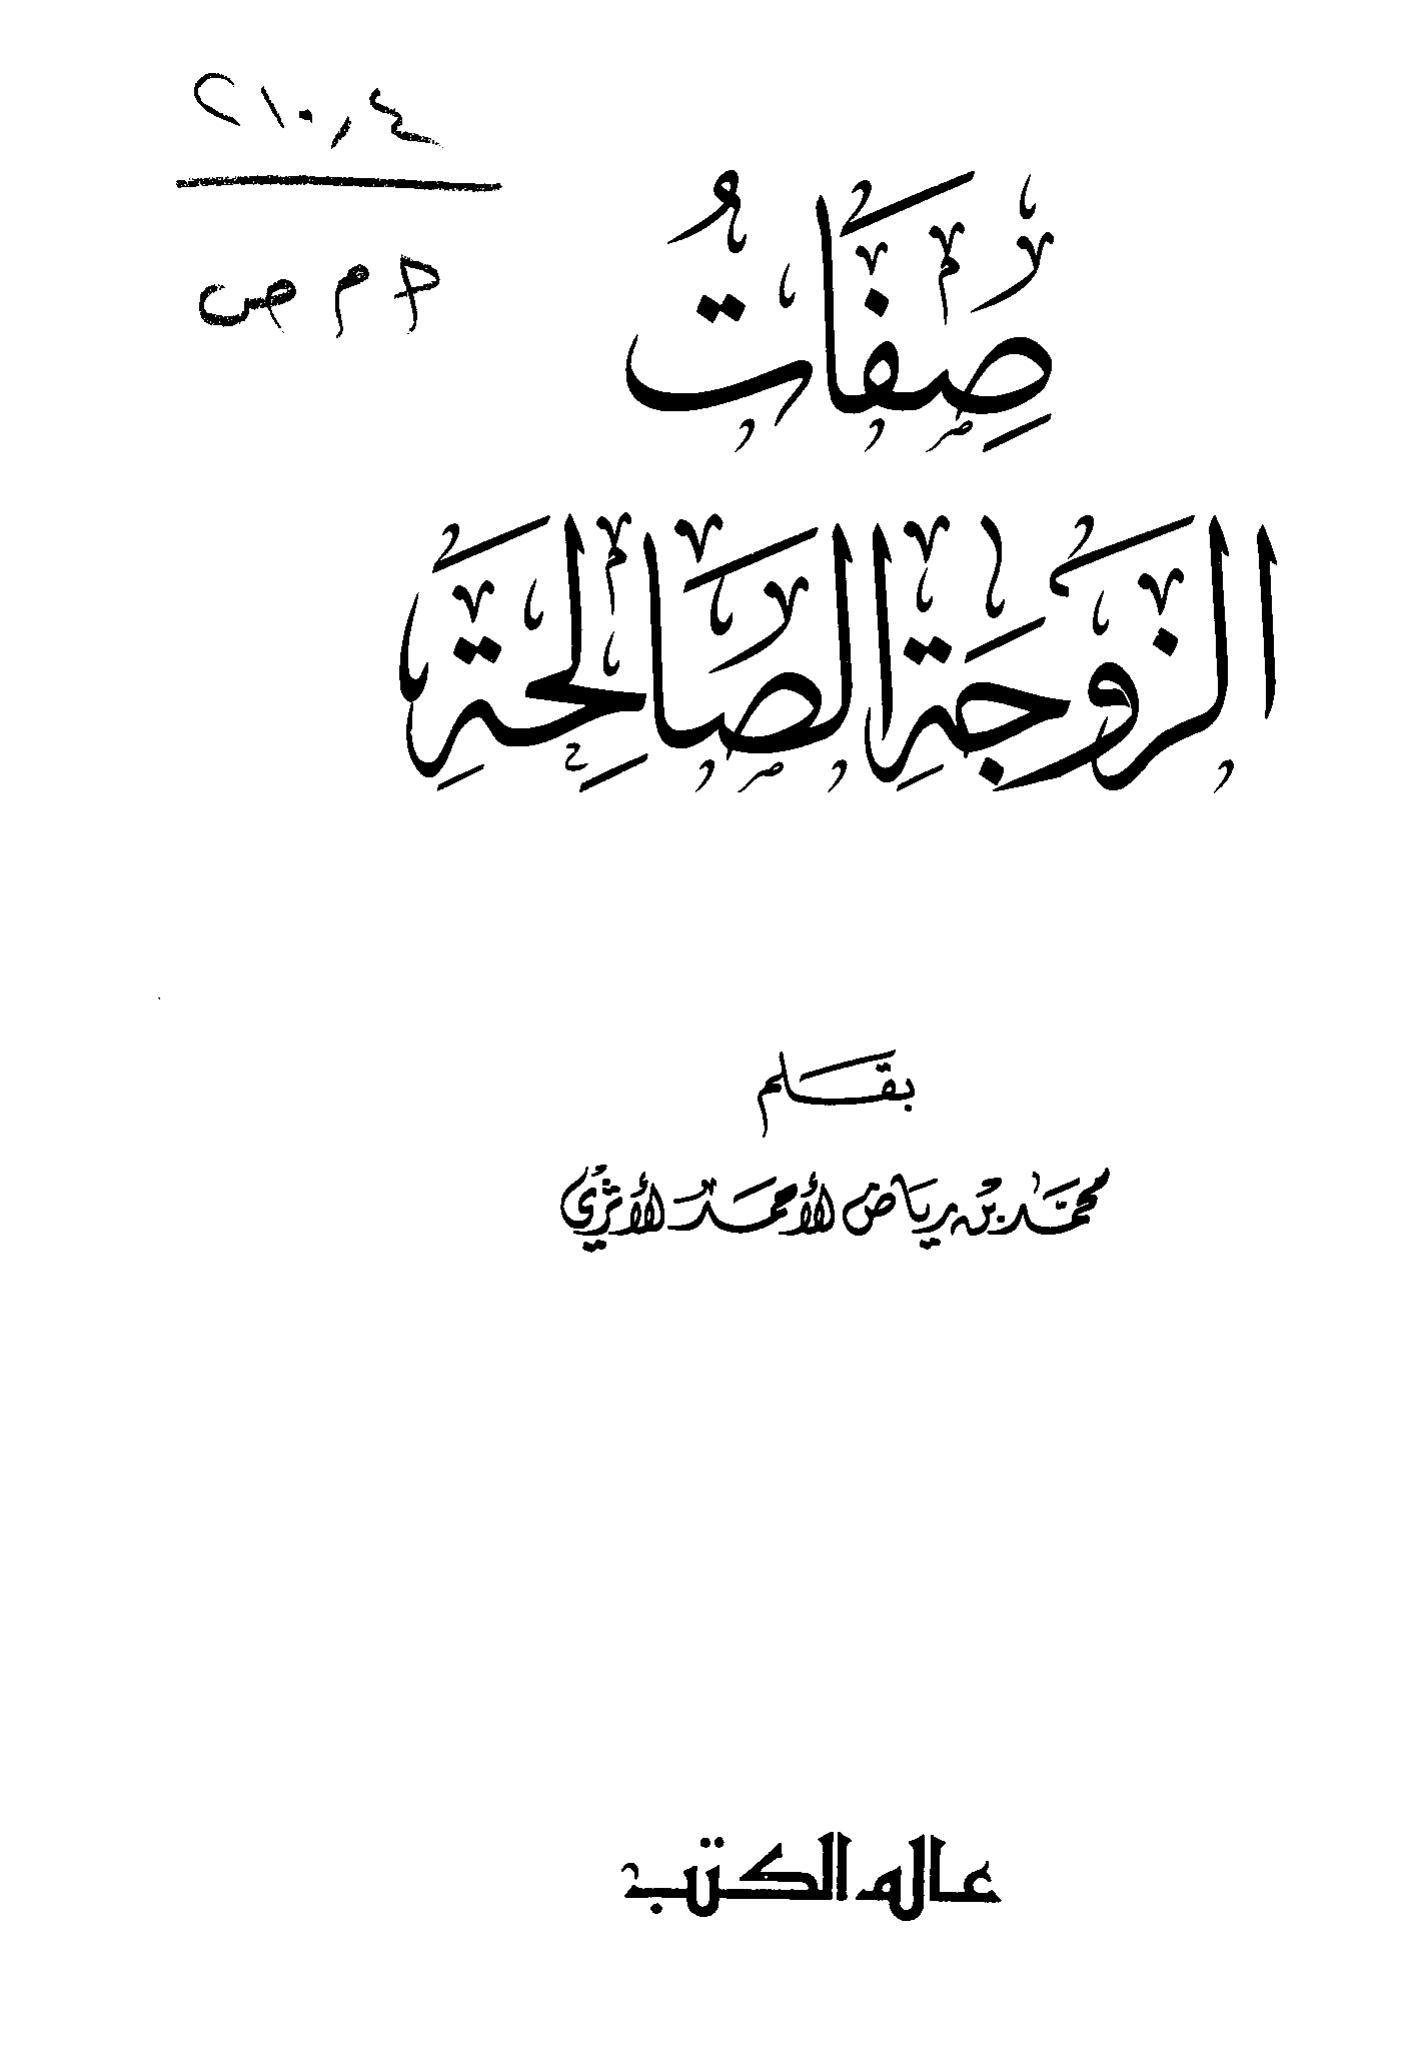 ٢١٠,٤
م ص
صِفَاتُ
الزَوجَةِ الصَالِحَةِ
بقلم
محمَّد بن رياض الأحمد الأثري
عالم الكتب